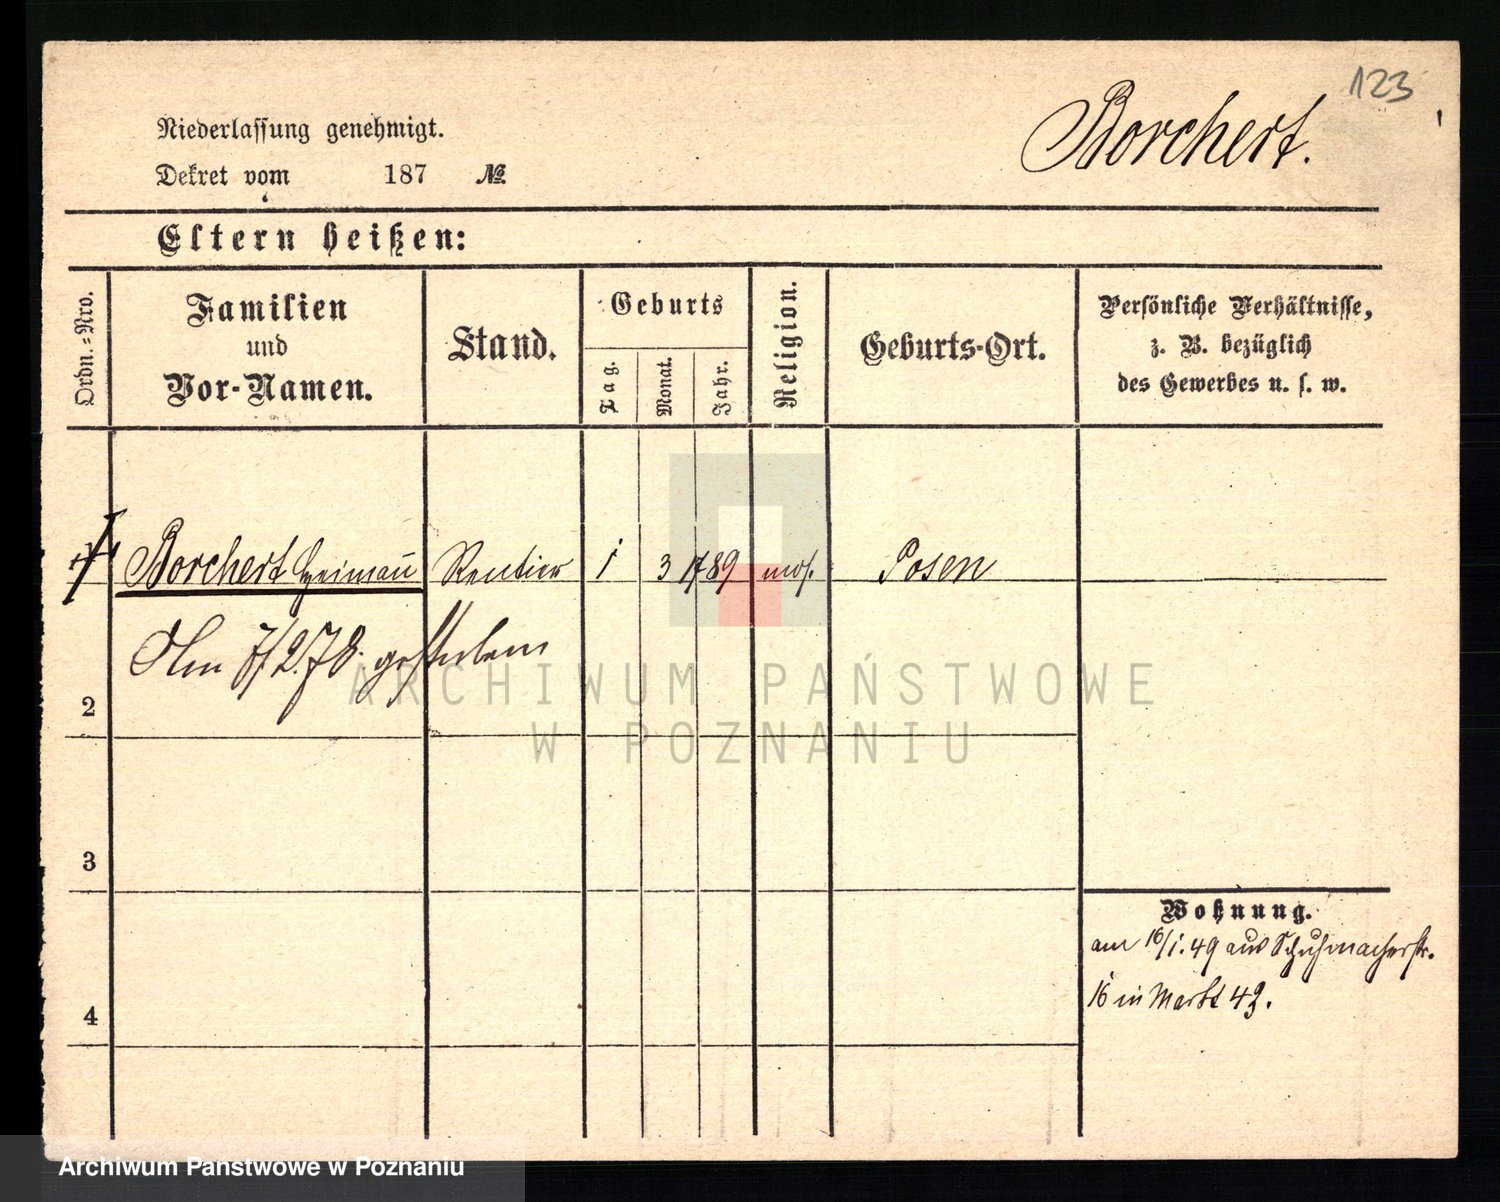 123
Borchert.
Niederlassung genehmigt.
Dekret vom 187 №
Eltern heißen:
Ordn.-Nro.
Familien
und
Vor-Namen.
Stand.
Geburts
Tag.
Monat.
Jahr.
Religion.
Geburts-Ort.
Persönliche Verhältnisse,
z. B. bezüglich
des Gewerbes u. s. w.
Borchert Heimann Rentier 1 3 1789 mos. Posen
Am 7/2.78. gestorben
2
3
4
Wohnung.
am 16/1.49 aus Schuhmacherstr.
16 in Markt 42.
ARCHIWUM PAŃSTWOWE
W POZNANIU
Archiwum Państwowe w Poznaniu